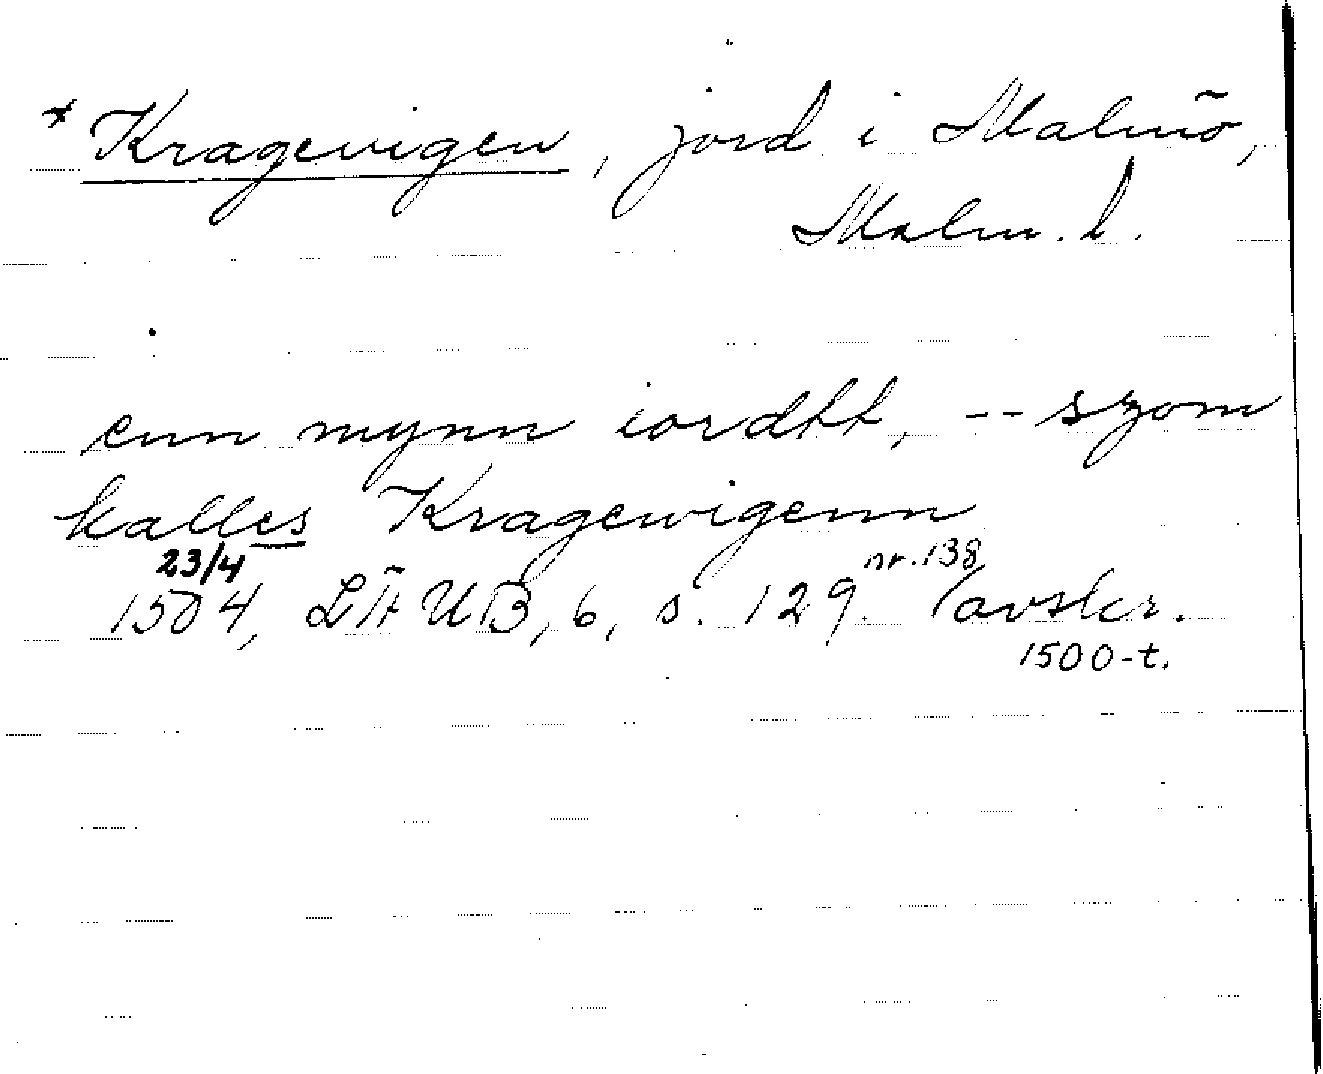 * Kragevigen, jord i Malmö,
Malm. l.
enn mynn iordtt, -- szom
kalles Kragewigenn
23/4 nr. 138
1504, LÄUB, 6, s. 129. (avskr.
1500-t.